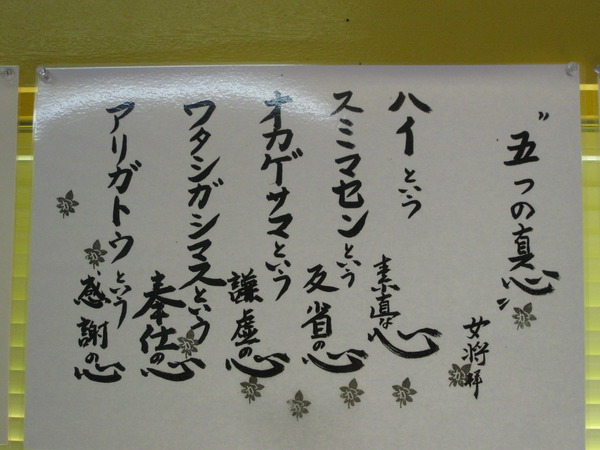 〝五つの真心〟
女将拝
ハイという素直な心
スミマセンという反省の心
オカゲサマという謙虚の心
ワタシガシマスという奉仕の心
アリガトウという感謝の心